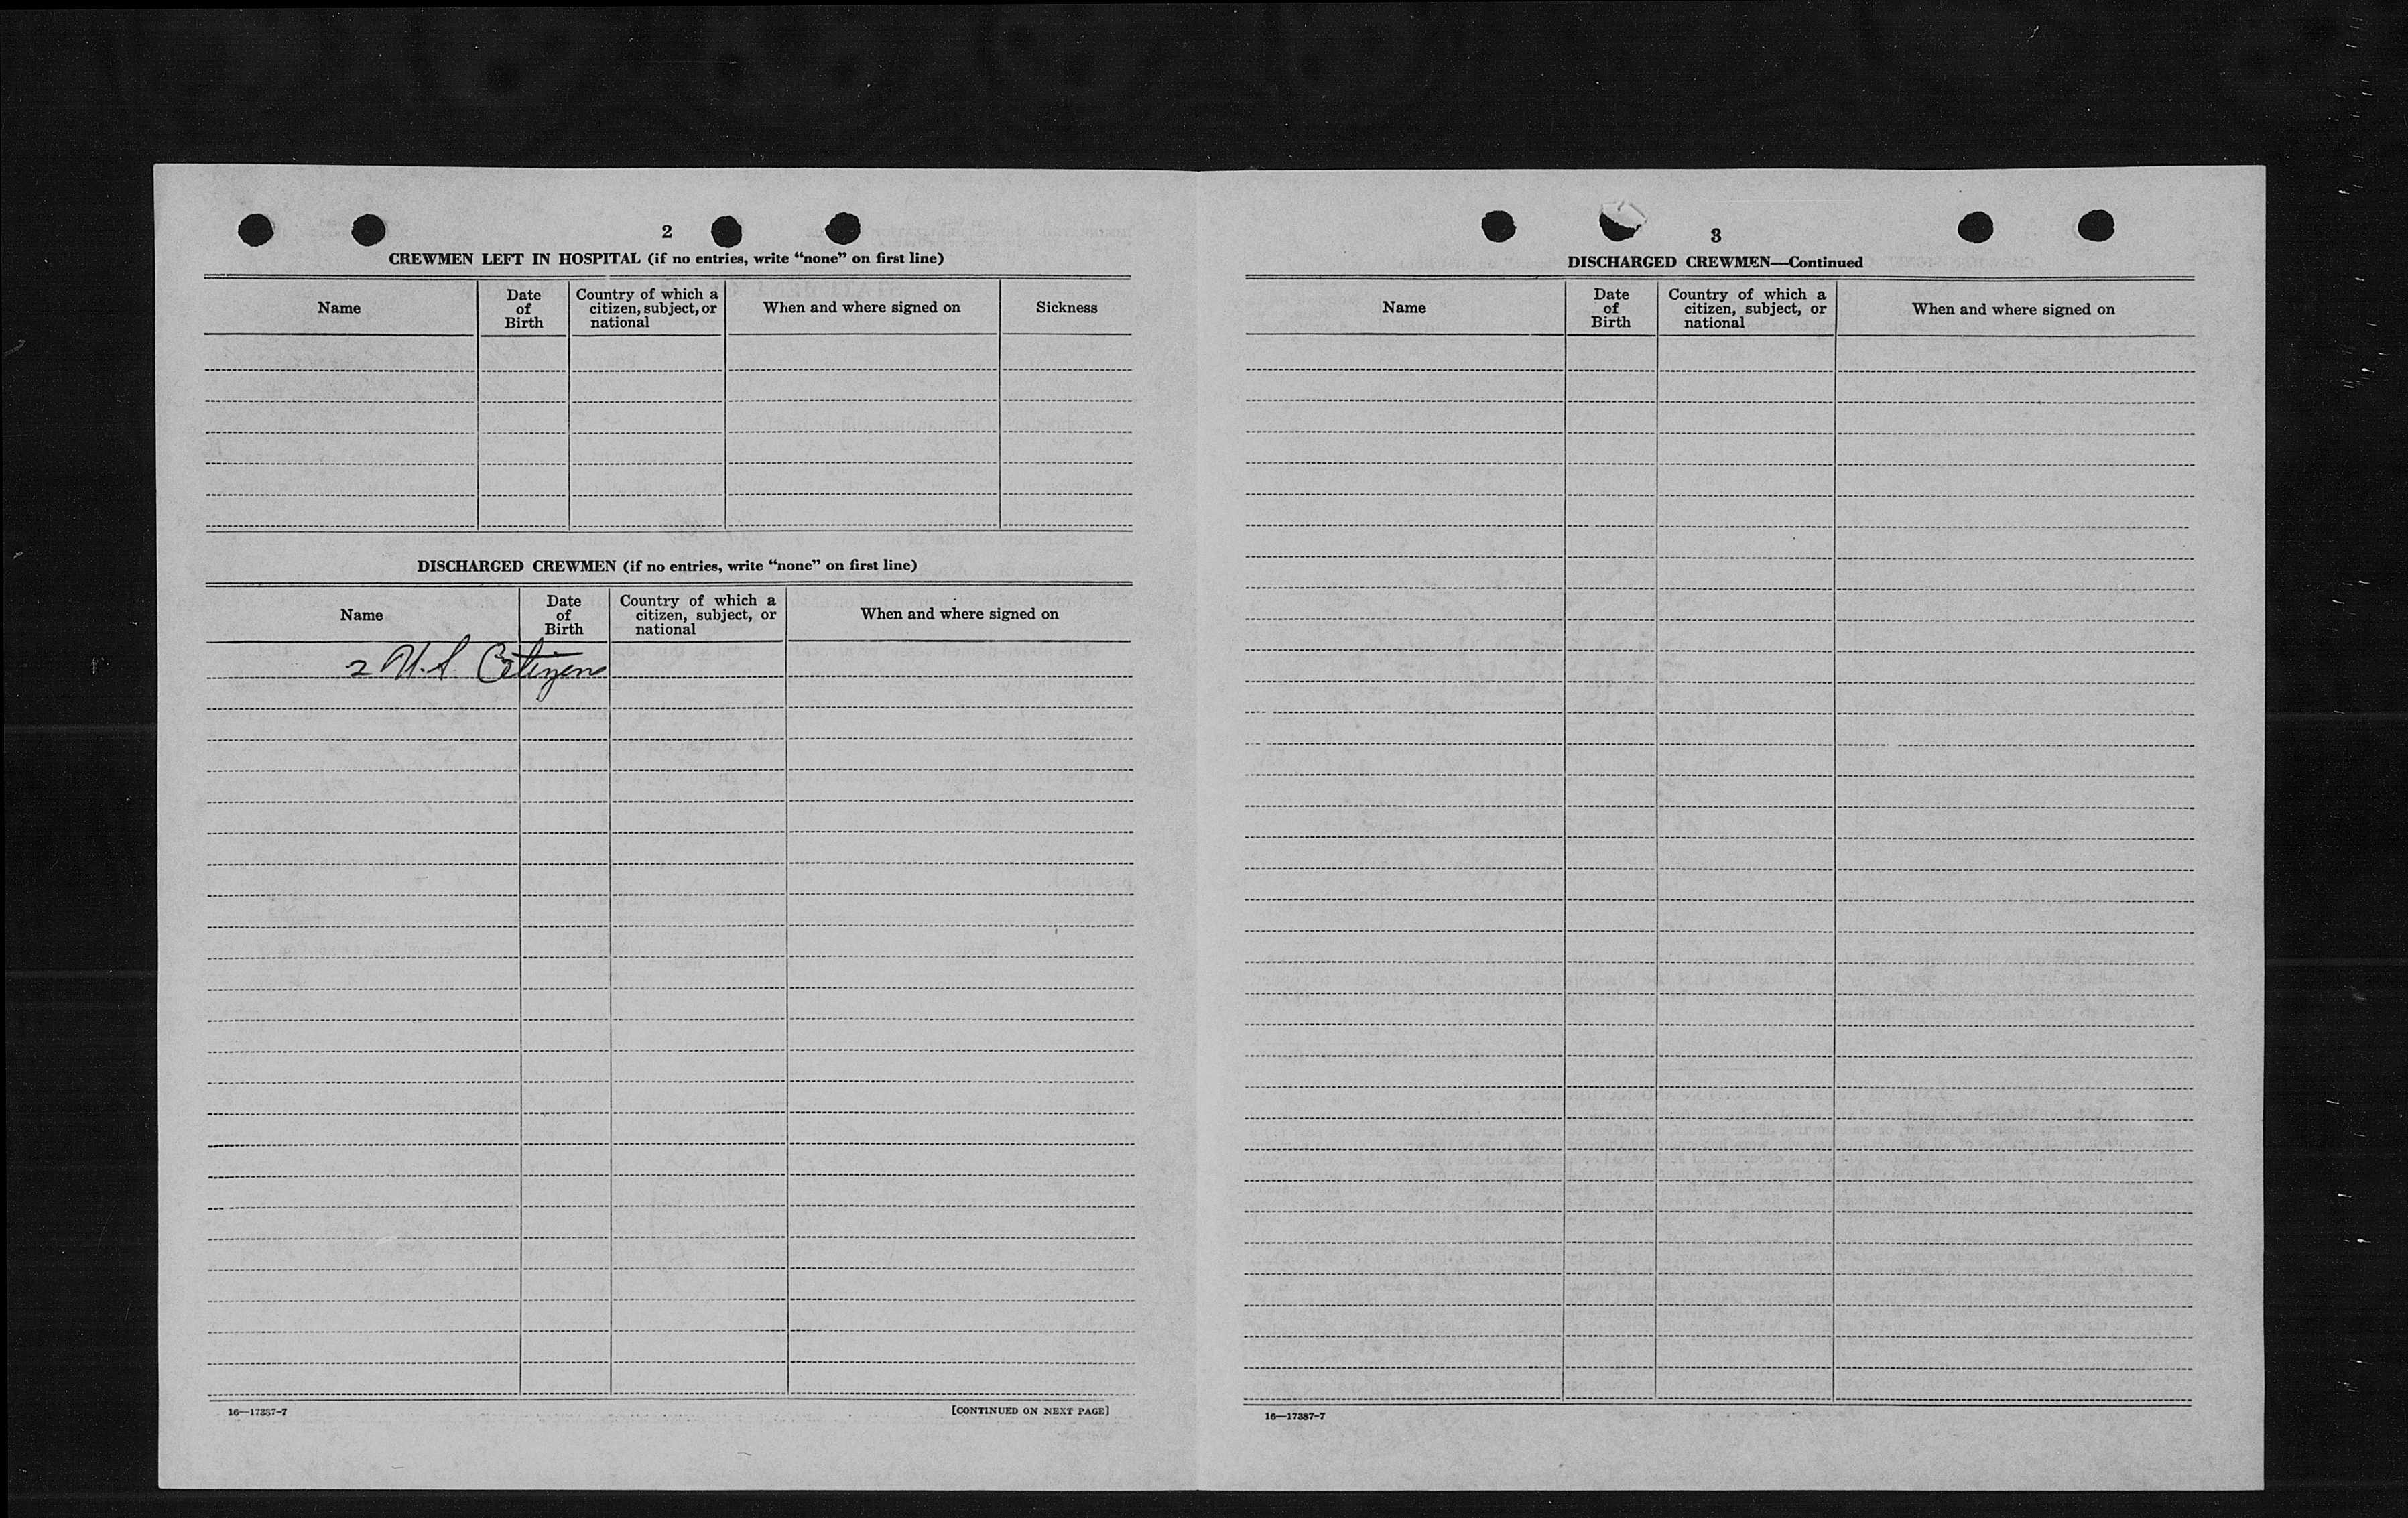 2
CREWMEN LEFT IN HOSPITAL (if no entries, write “none” on first line)
Name
Date of Birth
Country of which a citizen, subject, or national
When and where signed on
Sickness
DISCHARGED CREWMEN (if no entries, write “none” on first line)
Name
Date of Birth
Country of which a citizen, subject, or national
When and where signed on
2 U.S. Citizens
16—17387-7
[CONTINUED ON NEXT PAGE]
3
DISCHARGED CREWMEN—Continued
Name
Date of Birth
Country of which a citizen, subject, or national
When and where signed on
16—17387-7